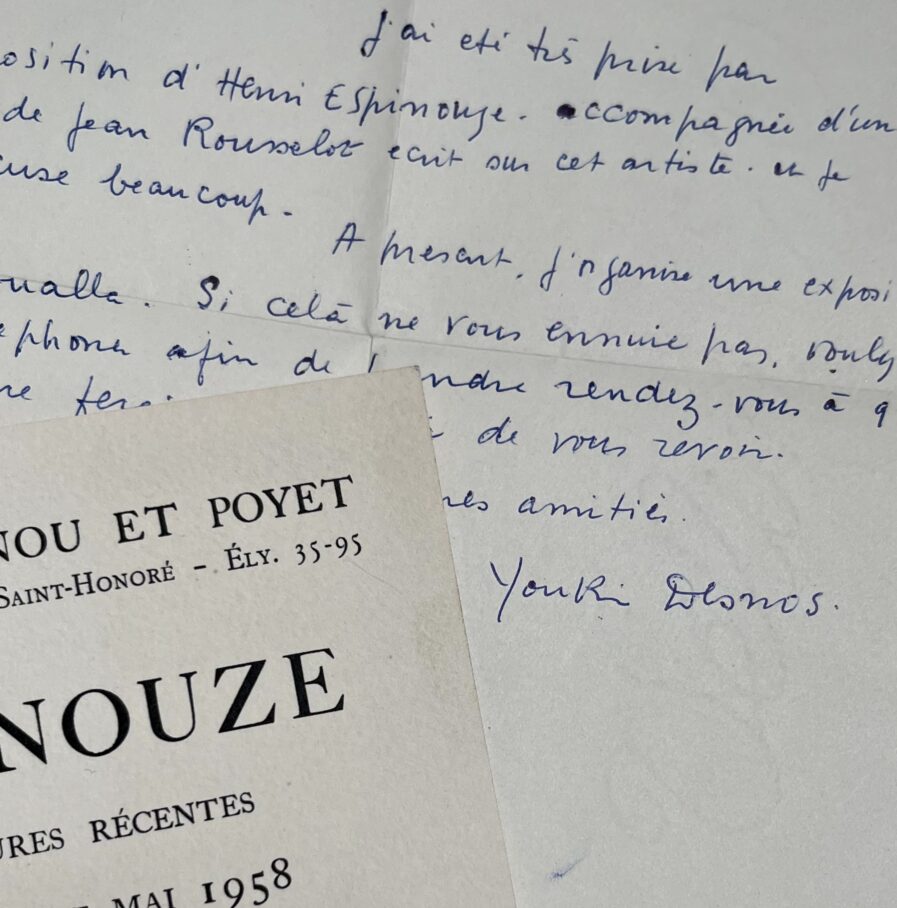 J'ai eté très prise par
osition d'Henri Espinouze. accompagnée d'un
de Jean Rousselot ecrit sur cet artiste. et je
cuse beaucoup.
A present, j'organise une exposi
oualle. Si celà ne vous ennuie pas, voulez
ephoner afin de endre rendez-vous à q
re
de vous revoir.
mes amitiés.
Youki Desnos.
NOU ET POYET
SAINT-HONORÉ - ÉLY. 35-95
NOUZE
URES RÉCENTES
MAI 1958